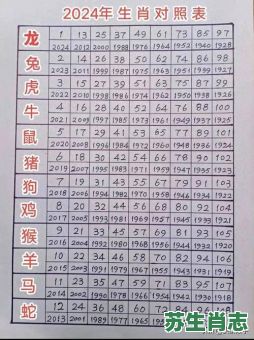 2024年生肖对照表
龙 1 13 25 37 49 61 73 85 97
2024 2012 2000 1988 1976 1964 1952 1940 1928
兔 2 14 26 38 50 62 74 86 98
2023 2011 1999 1987 1975 1963 1951 1939 1927
虎 3 15 27 39 51 63 75 87 99
2022 2010 1998 1986 1974 1962 1950 1938 1926
牛 4 16 28 40 52 64 76 88 100
2021 2009 1997 1985 1973 1961 1949 1937 1925
鼠 5 17 29 41 53 65 77 89 101
2020 2008 1996 1984 1972 1960 1948 1936 1924
猪 6 18 30 42 54 66 78 90 102
2019 2007 1995 1983 1971 1959 1947 1935 1923
狗 7 19 31 43 55 67 79 91 103
2018 2006 1994 1982 1970 1958 1946 1934 1922
鸡 8 20 32 44 56 68 80 92 104
2017 2005 1993 1981 1969 1957 1945 1933 1921
猴 9 21 33 45 57 69 81 93 105
2016 2004 1992 1980 1968 1956 1944 1932 1920
羊 10 22 34 46 58 70 82 94 106
2015 2003 1991 1979 1967 1955 1943 1931 1919
马 11 23 35 47 59 71 83 95 107
2014 2002 1990 1978 1966 1954 1942 1930 1918
蛇 12 24 36 48 60 72 84 96 108
2013 2001 1989 1977 1965
苏生肖志